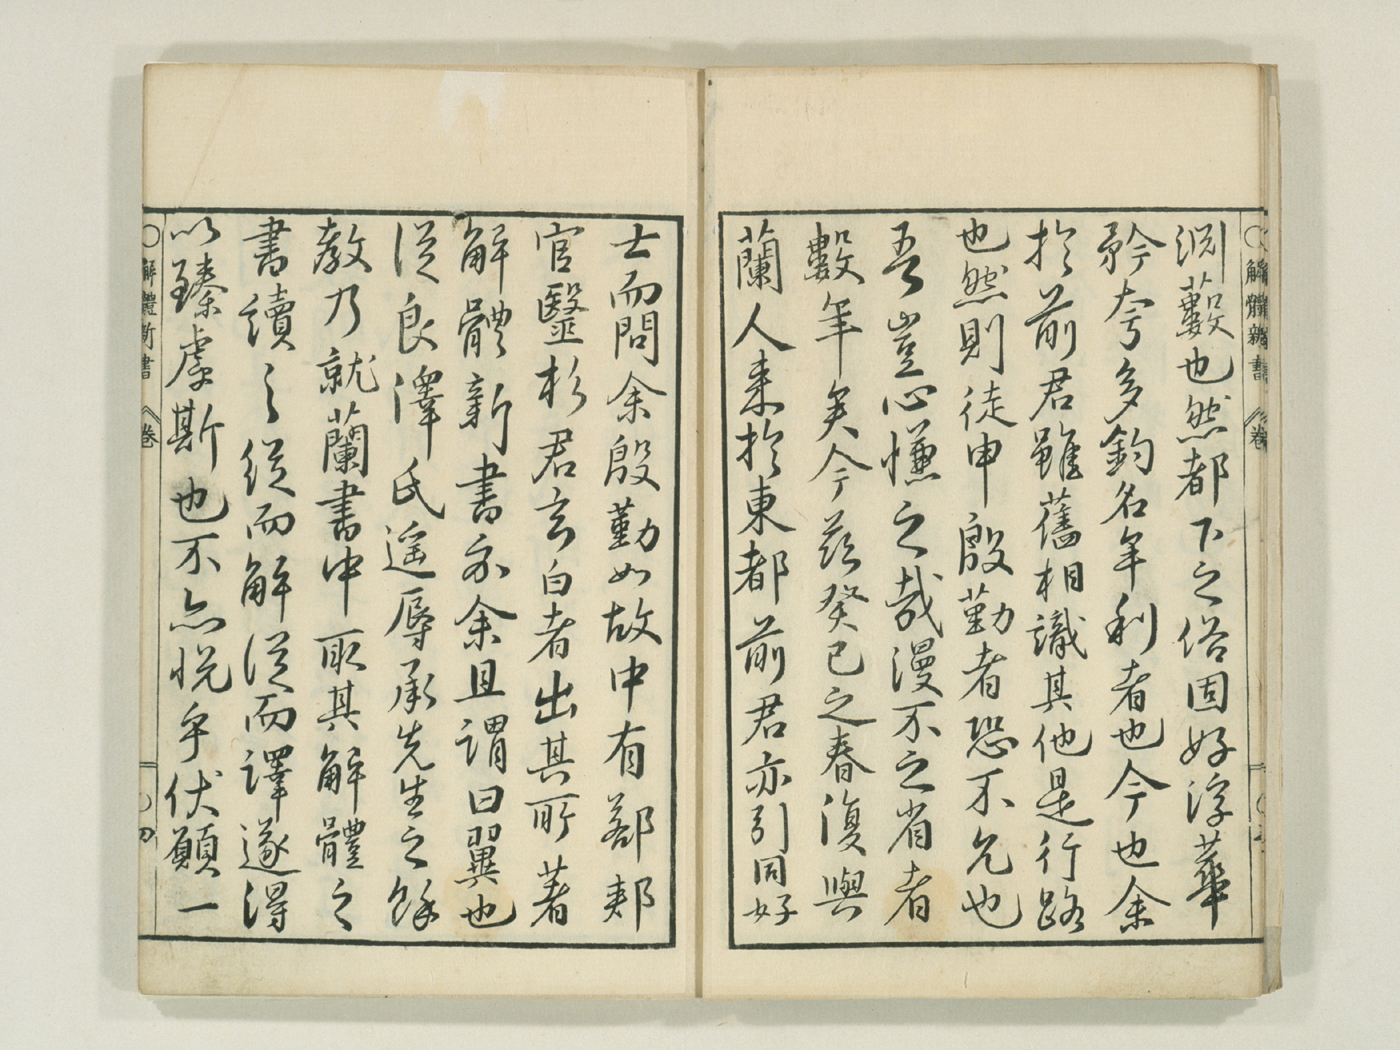 渕藪也然都下之俗固好浮華
矜夸多釣名牟利者也今也余
於前君雖舊相識其他是行路
也然則徒申殷勤者恐不允也
吾豈心慊之哉漫不之省者
數年矣今茲癸巳之春復與
蘭人来於東都前君亦引同好
士而問余殷勤如故中有若狹
官醫杉君玄白者出其所著
解體新書示余且謂曰翼也
從良澤氏遥辱承先生之餘
教乃就蘭書中取其解體之
書讀之從而解從而譯遂得
以臻虖斯也不亦悦乎伏願一
解體新書
卷
解體新書
卷
四